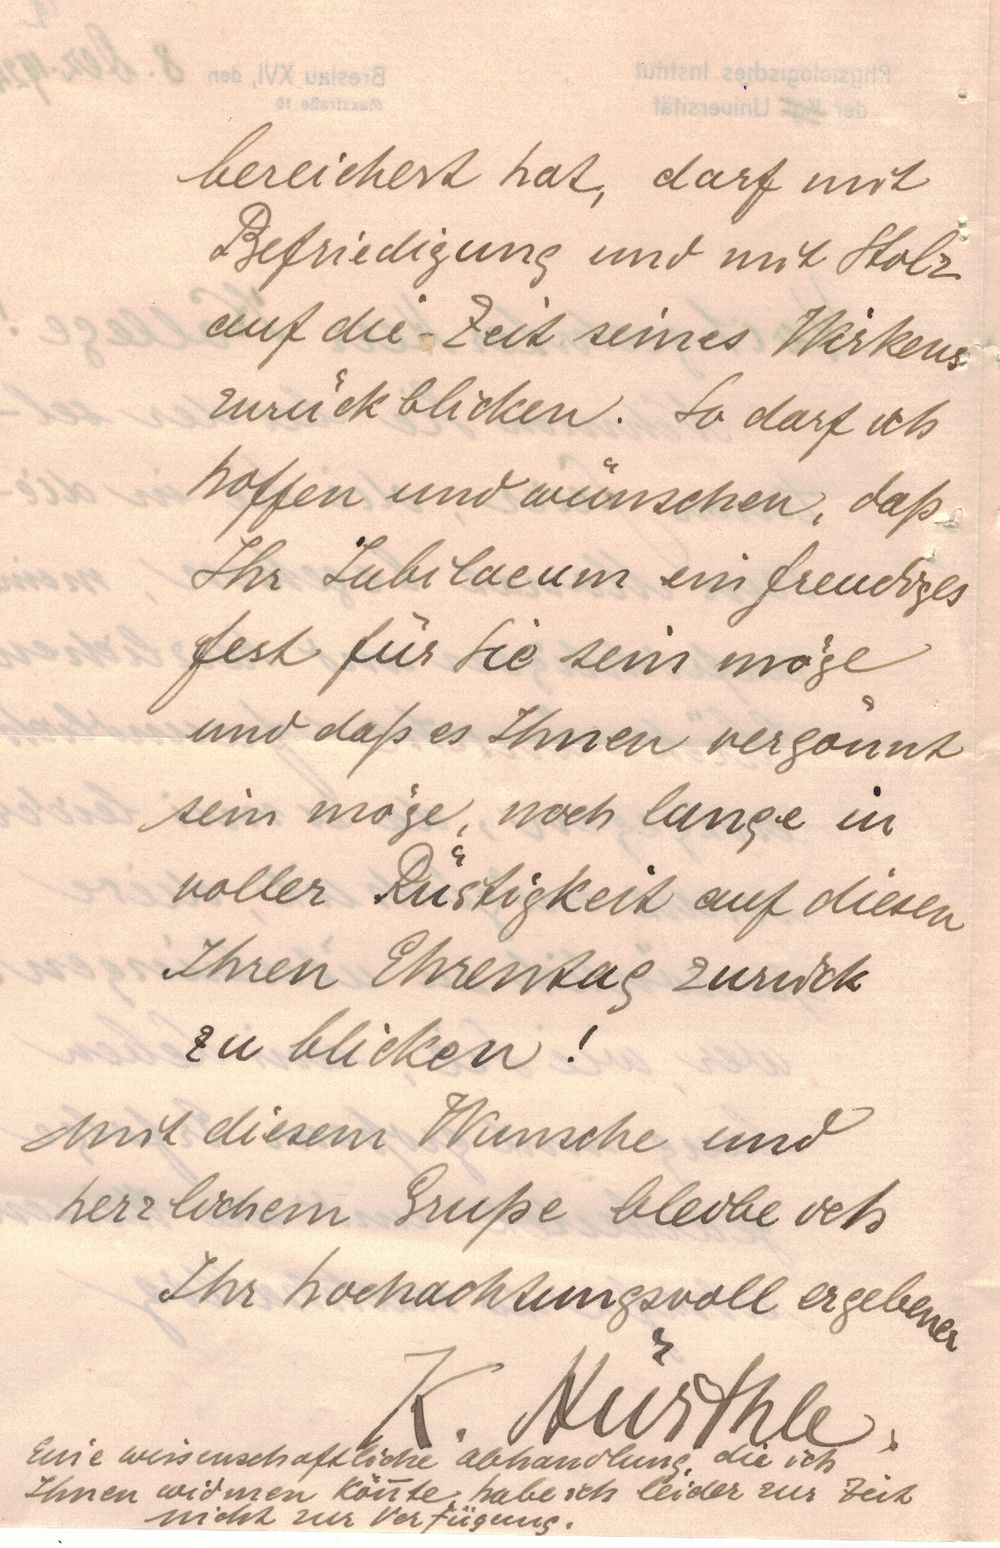 bereichert hat, darf mit
Befriedigung und mit Stolz
auf die Zeit seines Wirkens
zurückblicken. So darf ich
hoffen und wünschen, daß
Ihr Jubilaeum ein freudiges
Fest für Sie sein möge
und daß es Ihnen vergönnt
sein möge, noch lange in
voller Rüstigkeit auf diesen
Ihren Ehrentag zurück
zu blicken!
Mit diesem Wunsche und
herzlichem Gruße bleibe ich
Ihr hochachtungsvoll ergebener
K. Hürthle.
Eine wissenschaftliche Abhandlung, die ich
Ihnen widmen kön̄te, habe ich leider zur Zeit
nicht zur Verfügung.